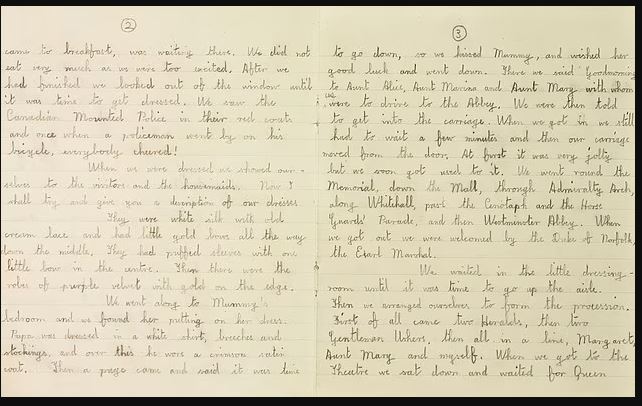 2
came to breakfast, was waiting there. We did not
eat very much as we were too excited. After we
had finished we looked out of the window until
it was time to get dressed. We saw the
Canadian Mounted Police in their red coats
and once when a policeman went by on his
bicycle, everybody cheered!
When we were dressed we showed our-
selves to the visitors and the housemaids. Now I
shall try and give you a description of our dresses.
They were white silk with old
cream lace and had little gold bows all the way
down the middle. They had puffed sleeves with one
little bow in the centre. Then there were the
robes of purple velvet with gold on the edge.
We went along to Mummy's
bedroom and we found her putting on her dress.
Papa was dressed in a white shirt, breeches and
stockings, and over this he wore a crimson satin
coat. Then a page came and said it was time
3
to go down, so we kissed Mummy, and wished her
good luck and went down. There we said Goodmorning
to Aunt Alice, Aunt Marina and Aunt Mary with whom
we were to drive to the Abbey. We were then told
to get into the carriage. When we got in we still
had to wait a few minutes and then our carriage
moved from the door. At first it was very jolty
but we soon got used to it. We went round the
Memorial, down the Mall, through Admiralty Arch,
along Whitehall, past the Cenotaph and the Horse
Guards' Parade, and then Westminster Abbey. When
we got out we were welcomed by the Duke of Norfolk,
the Earl Marshal.
We waited in the little dressing-
room until it was time to go up the aisle.
Then we arranged ourselves to form the procession.
First of all came two Heralds, then two
Gentleman Ushers, then all in a line, Margaret,
Aunt Mary and myself. When we got to the
Theatre we sat down and waited for Queen